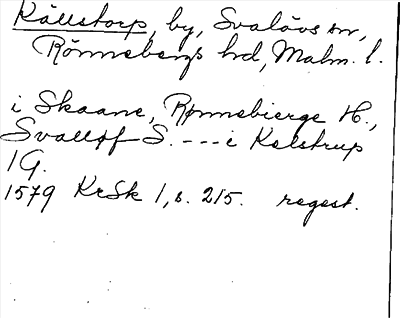 Källstorp, by, Svalövs sn,
Rönnebergs hd, Malm. l.
i Skaane, Rønnebierge H.,
Svalløf S. --- i Kelstrup
1 G.
1579 KrSk 1, s. 215. regest.